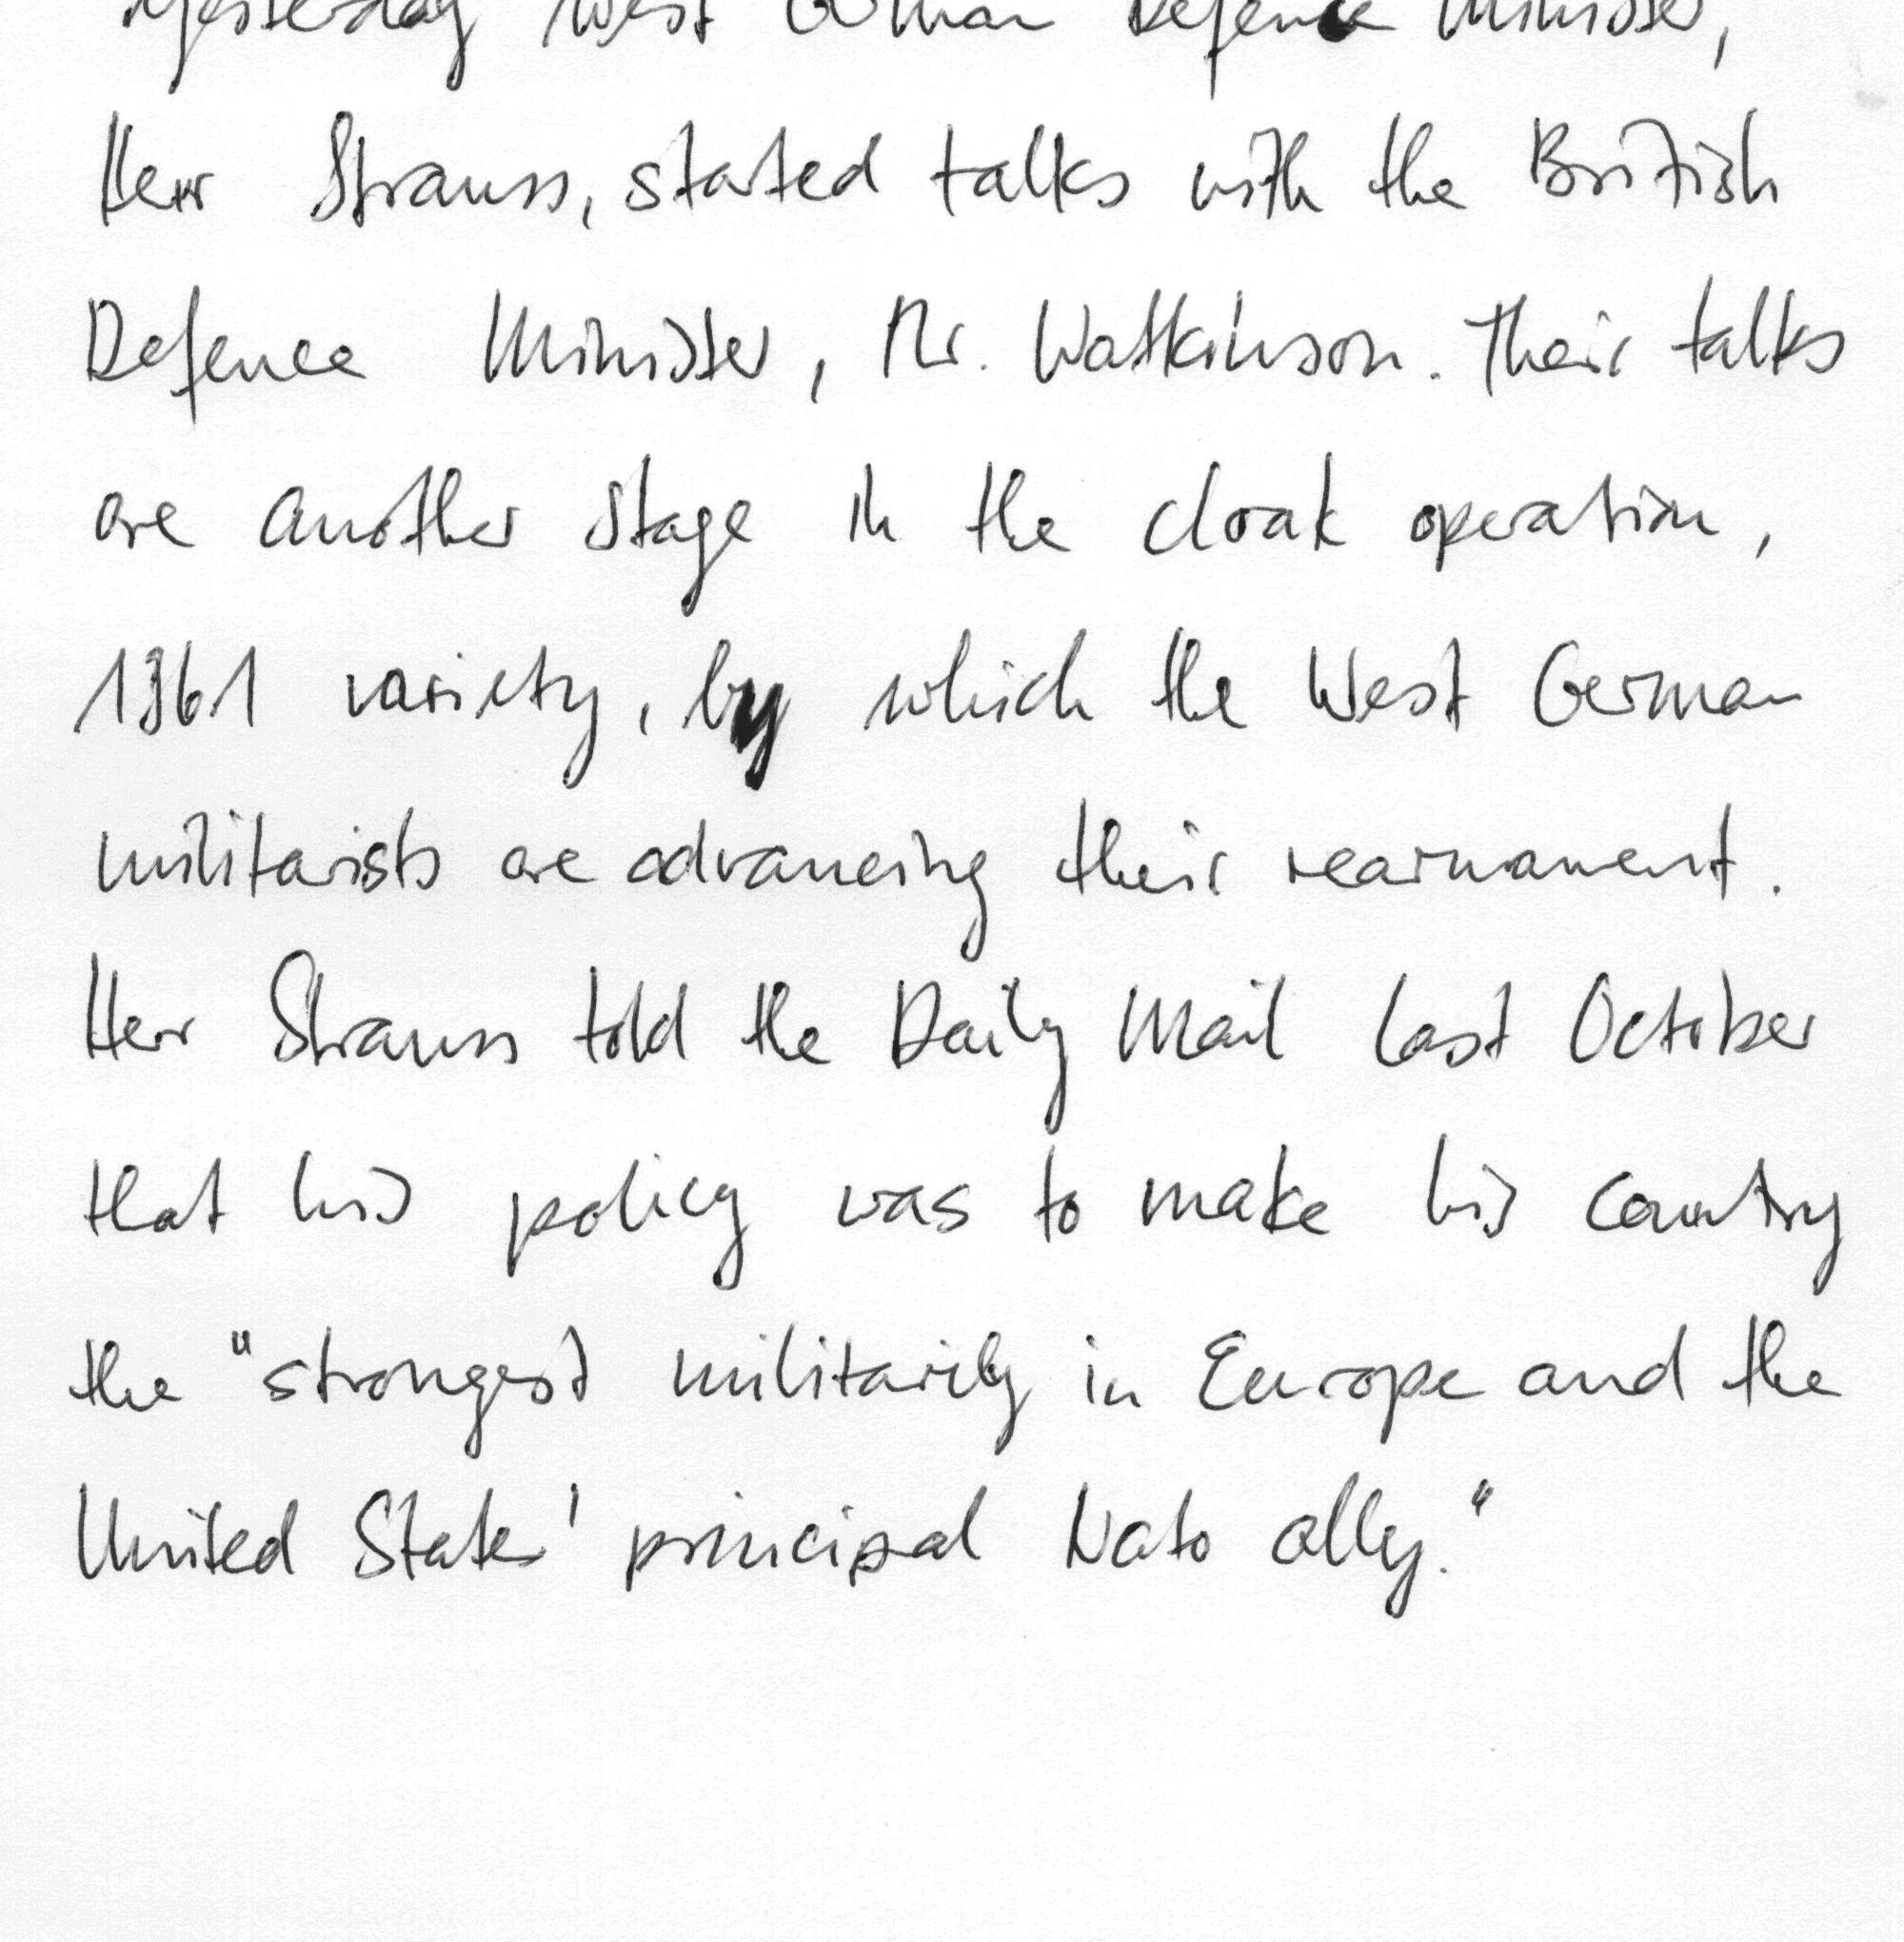 Yesterday West German Defence Minister,
Herr Strauss, started talks with the British
Defence Minister, Mr. Watkinson. Their talks
are another stage in the cloak operation,
1961 variety, by which the West German
militarists are advancing their rearmament.
Herr Strauss told the Daily Mail last October
that his policy was to make his country
the "strongest militarily in Europe and the
United States' principal Nato ally."